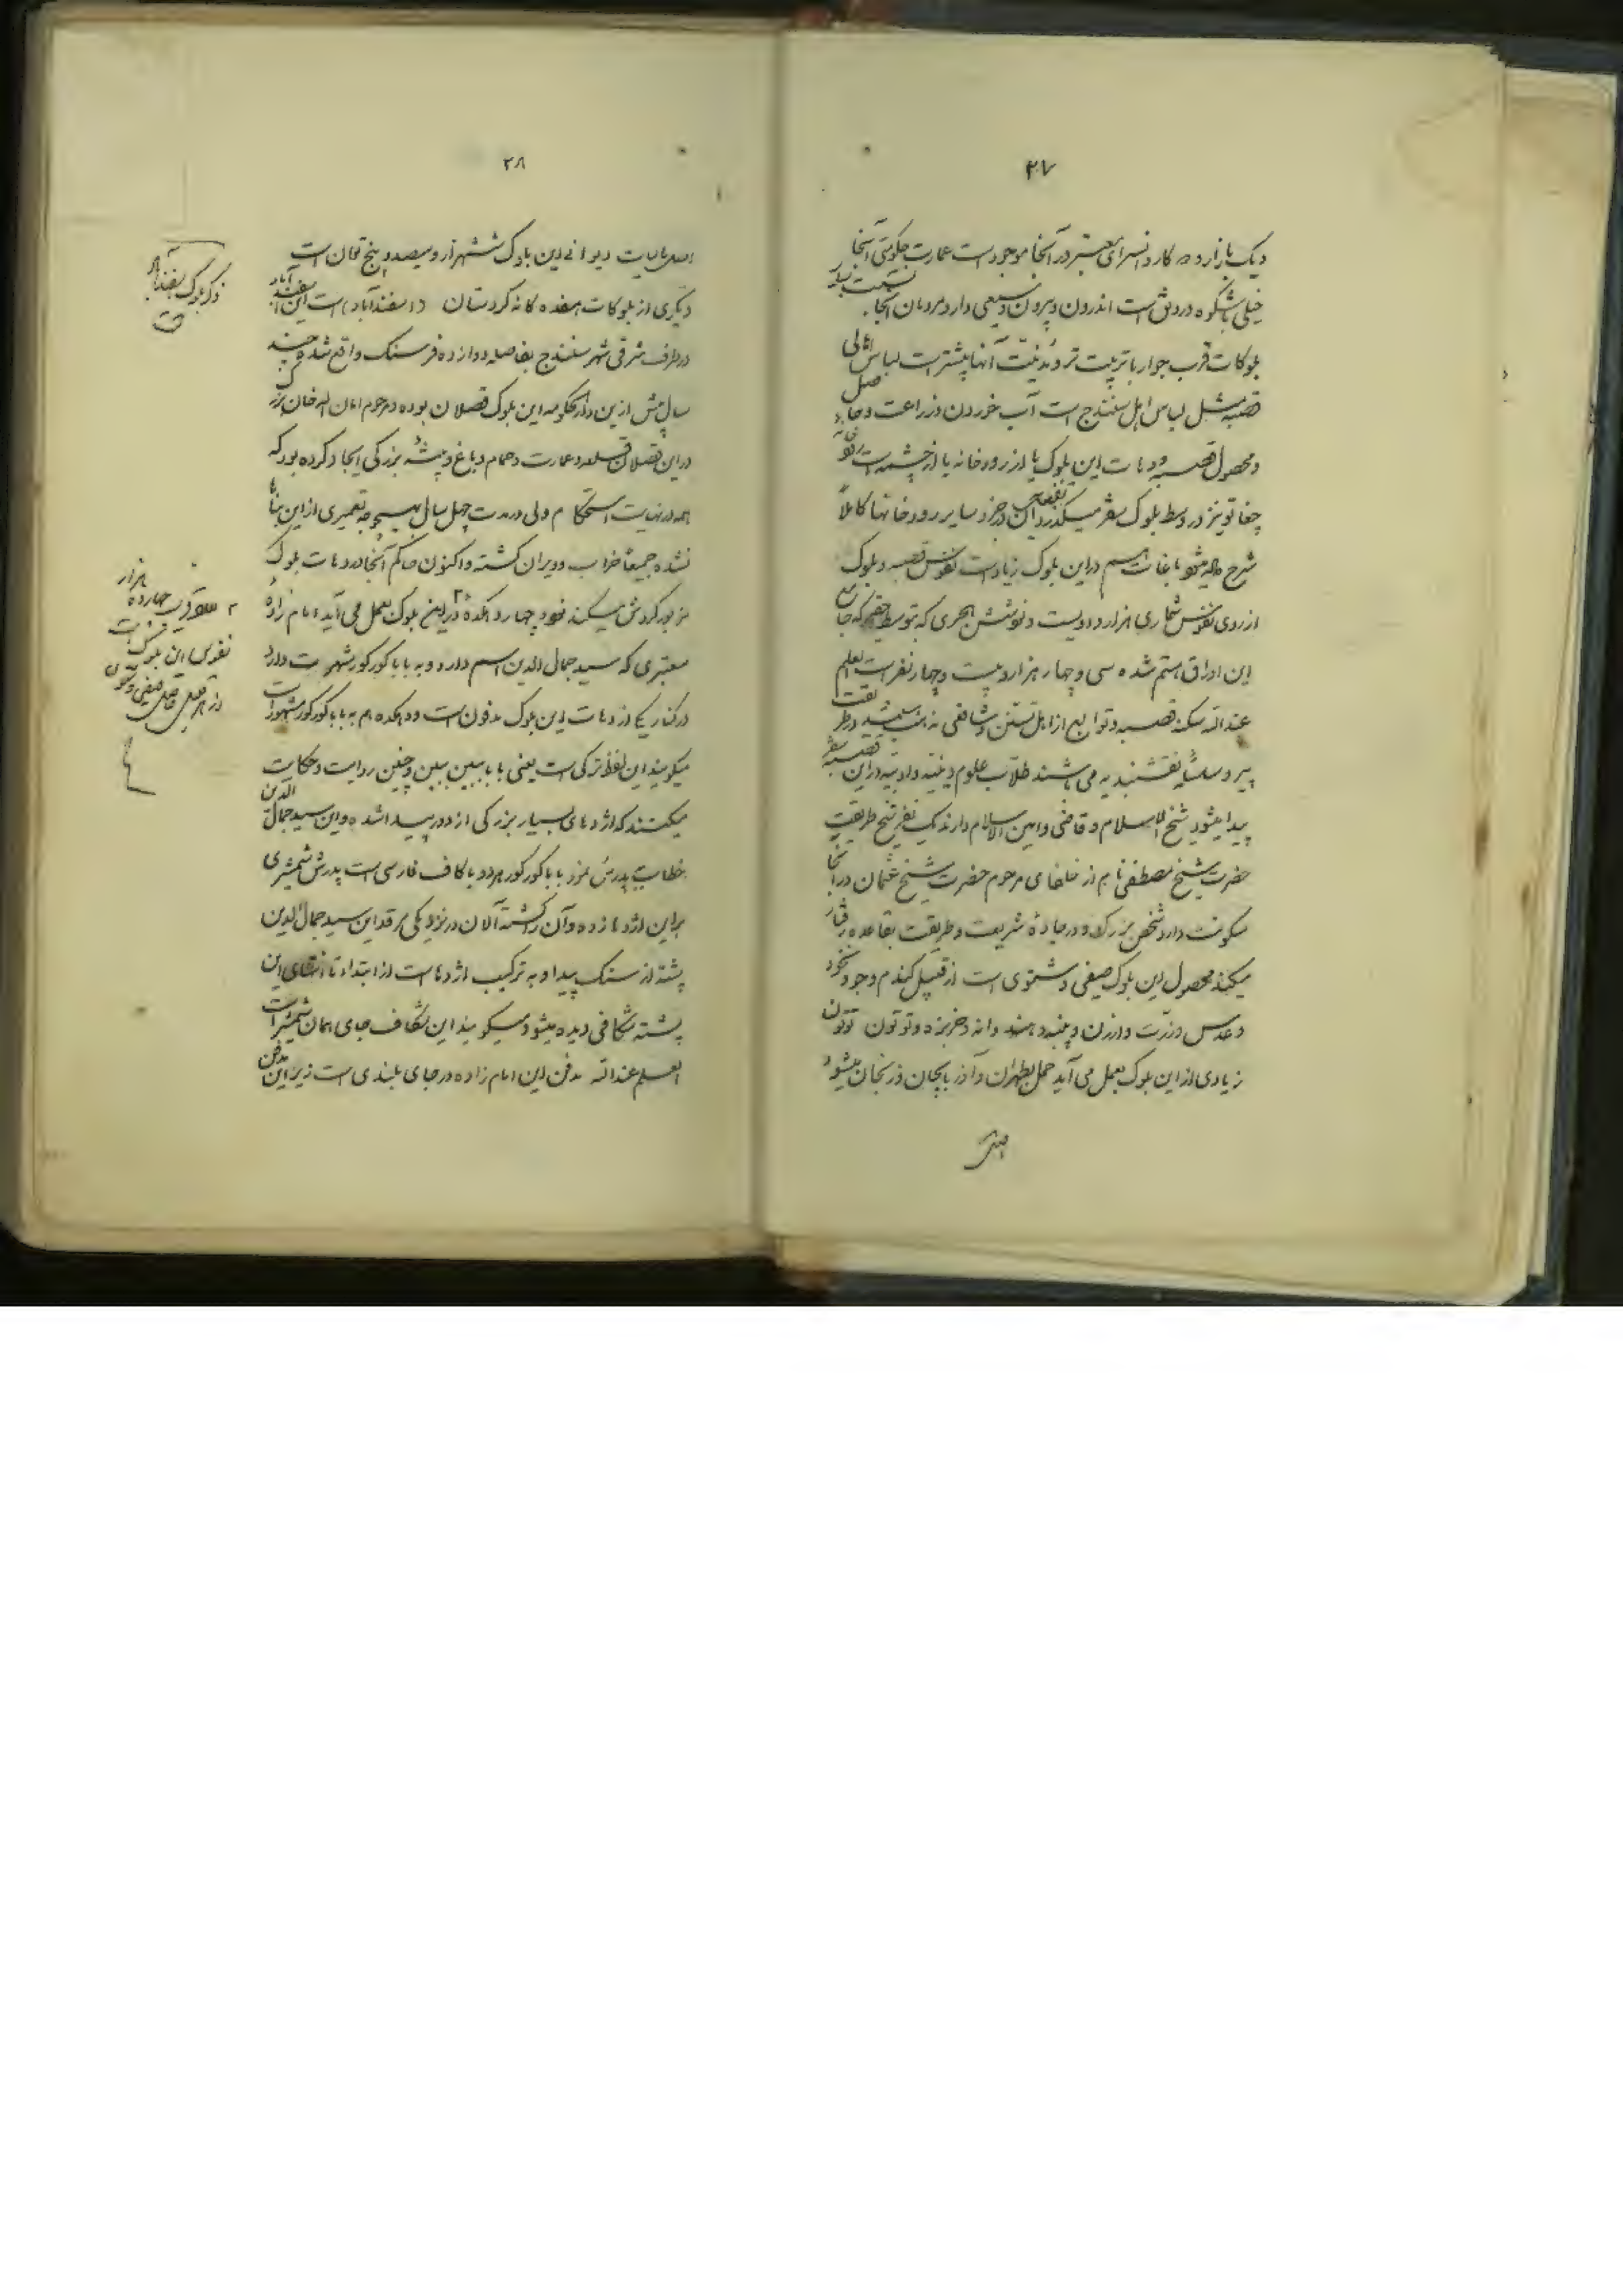 ۳۷
و یک بازار و ده کاروانسرای معتبر در آنجا موجود است عمارت حکومتی آنجا
خیلی باشکوه و رونق است اندرون و بیرون وسیعی دارد مردمان آنجا نسبت بسایر
بلوکات قرب جوار با تربیت تر و مدنیت آنها بیشتر است لباس اهالی
قصبه مثل لباس اهل سنندج است آب خوردن و زراعت و حاصل
و محصول قصبه و دهات این بلوک یا از رودخانه یا از چشمه است رودخانه
جغاتو نیز در وسط بلوک سقز میگذرد در جزو سایر رودخانها کاملاً
شرح داده میشود باغات هم در این بلوک زیاد است نفوس قصبه و بلوک
از روی نفوس شماری هزار و دویست و نود و شش هجری که بتوسط حقیر که جامع
این اوراق هستم شده سی و چهار هزار و بیست و چهار نفر است العلم
عندالله سکنه قصبه و توابع از اهل تسنن و شافعی مذهب میباشند در طریقت
پیرو سلسلهٔ نقشبندیه می باشند طلاب علوم دینیه و ادبیه در این قصبه سقز
پیدا میشود شیخ الاسلام و قاضی و امین الاسلام دارند یک نفر شیخ طریقت
حضرت شیخ مصطفی نام از خلفای مرحوم حضرت شیخ عثمان در آنجا
سکونت دارد شخص بزرک و در جادهٔ شریعت و طریقت بقاعده رفتار
میکند محصول این بلوک صیفی و شتوی است از قبیل کندم و جو و نخود
و عدس و ذرت و ارزن و پنبه و هندوانه و خربزه و توتون توتون
زیادی از این بلوک بعمل می آید حمل بطهران و آذربایجان و زنجان میشود
اصل
۳۸
اصل مالیات دیوانی این بلوک ششهزار و سیصد و پنج تومان است
دیکری از بلوکات هفده کانه کردستان (اسفندآباد) است این اسفندآباد
در طرف شرقی شهر سنندج بفاصله دوازده فرسنک واقع شده چند
سال پیش از این دارالحکومه این بلوک قصلان بوده و مرحوم امان الله خان بزرک
در این قصلان قلعه و عمارت و حمام و باغ و بیشه بزرکی ایجاد کرده بود که
همه در نهایت استحکام ولی در مدت چهل سال بهیچوجه تعمیری از این بناها
نشده جمیعاً خراب و ویران کشته و اکنون حاکم آنجا در دهات بلوک
مزبور کردش میکند در این بلوک بعمل می آید امام زادهٔ
معتبری که سید جمال الدین اسم دارد و به بابا کورکور شهرت دارد
در کنار یکی از دهات این بلوک مدفون است و دهکده هم به بابا کورکور مشهور است
میکویند این لفظ ترکی است یعنی بابا ببین ببین و چنین روایت و حکایت
میکنند که اژدهای بسیار بزرکی از دور پیدا شده و این سید جمال الدین
خطاب بپدرش نمود بابا کورکور هر دو با کاف فارسی است پدرش شمشیری
بر این اژدها زده و آن را کشته الان در نزدیکی مرقد این سید جمال الدین
پشته از سنک پیدا و به ترکیب اژدها است از ابتداء تا انتهای این
پشته شکافی دیده میشود میکویند این شکاف جای همان شمشیر است
العلم عندالله مدفن این امام زاده در جای بلندی است زیر این مدفن
ذکر بلوک اسفندآباد
است
قریب چهارده هزار
نفوس این بلوک است